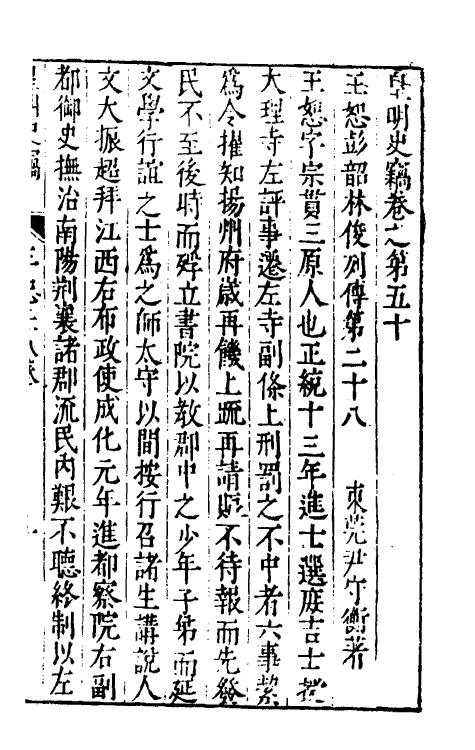 皇明史竊卷之第五十
王恕彭韶林俊列傳第二十八　東莞尹守衡著
王恕字宗貫三原人也正統十三年進士選庶吉士授
大理寺左評事遷左寺副條上刑罰之不中者六事絜
爲令擢知揚州府歲再饑上疏再請賑不待報而先發
民不至後時而殍立書院以教郡中之少年子弟而延
文學行誼之士爲之師太守以間按行召諸生講說人
文大振超拜江西右布政使成化元年進都察院右副
都御史撫治南陽荆襄諸郡流民內艱不聽終制以左